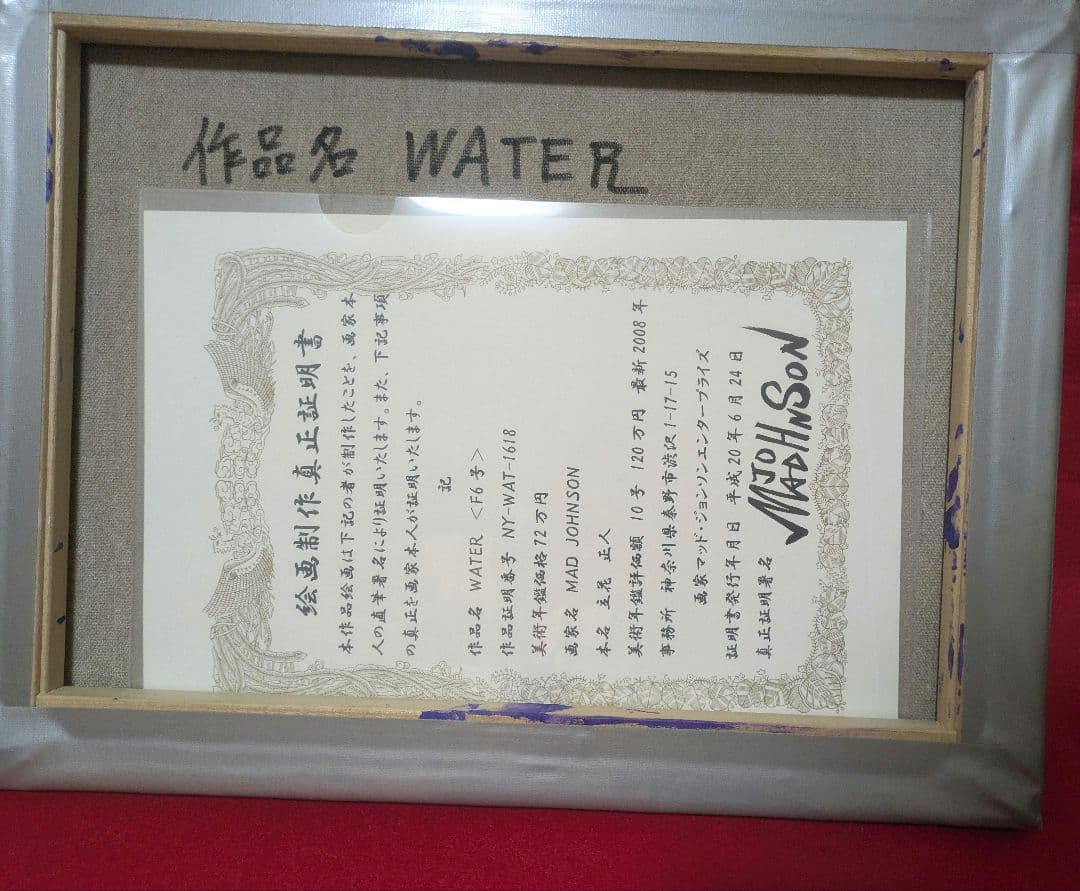 作品名 WATER
絵画制作真正証明書
本作品絵画は下記の者が制作したことを、画家本
人の直筆署名により証明いたします。また、下記事項
の真正を画家本人が証明いたします。
記
作品名 WATER <F6号>
作品証明番号 NY-WAT-1618
美術年鑑価格72万円
画家名 MAD JOHNSON
本名 立花 正人
美術年鑑評価額 10号 120万円 最新2008年
事務所 神奈川県秦野市渋沢1-17-15
画家マッド・ジョンソンエンタープライズ
証明書発行年月日 平成20年6月24日
真正証明署名
MAD JOHNSON